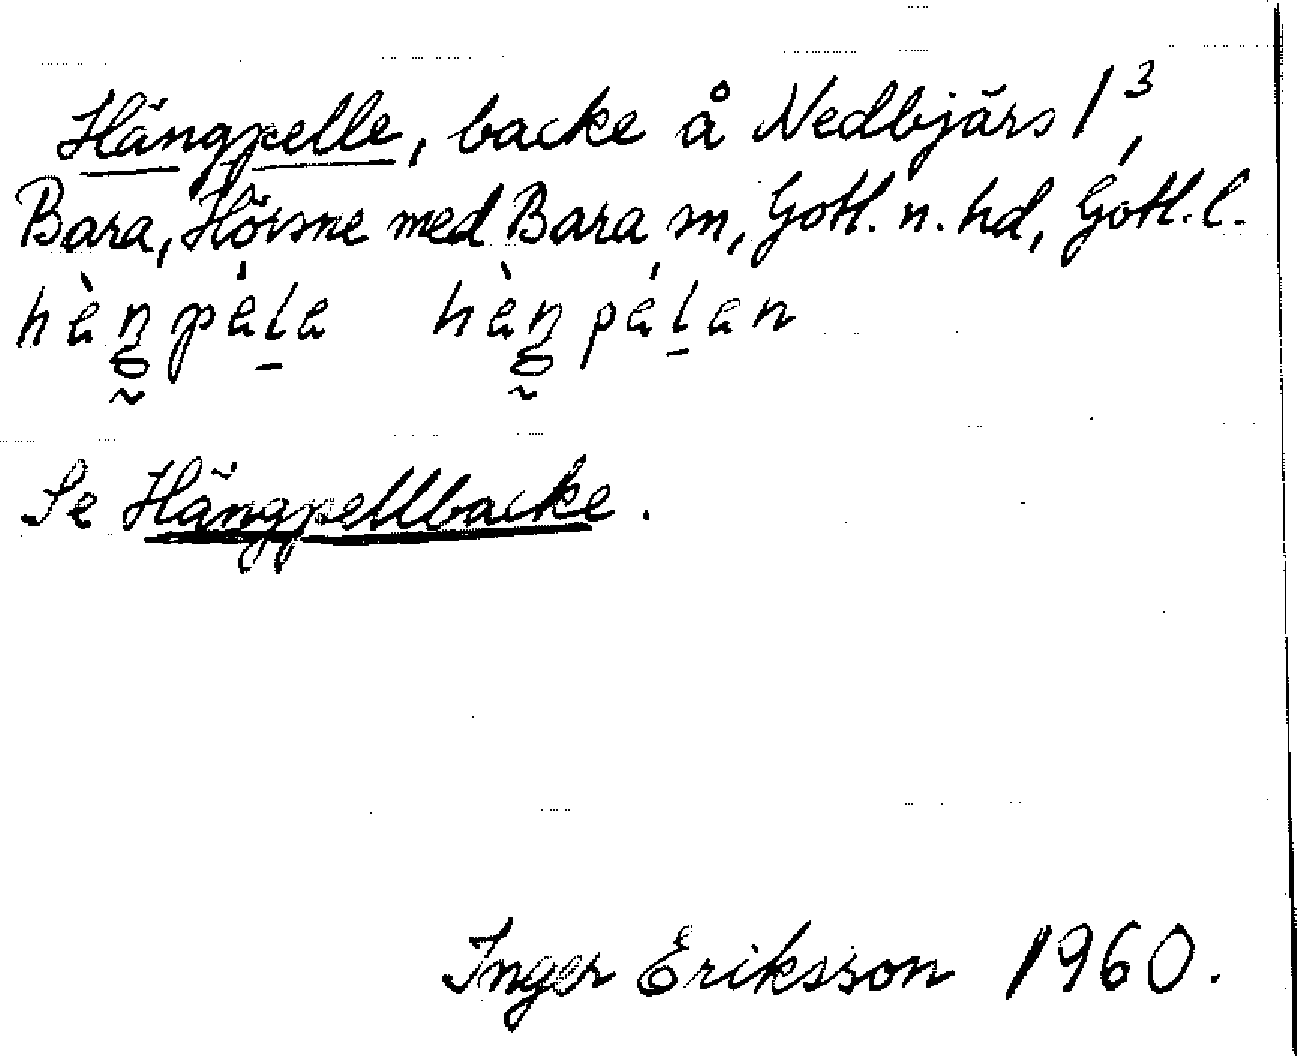 Hängpelle, backe å Nedbjärs 1³,
Bara, Hörsne med Bara sn, Gotl. n. hd, Gotl. l.
hὲŋpélɐ hὲŋpélɐn
Se Hängpellbacke.
Inger Eriksson 1960.